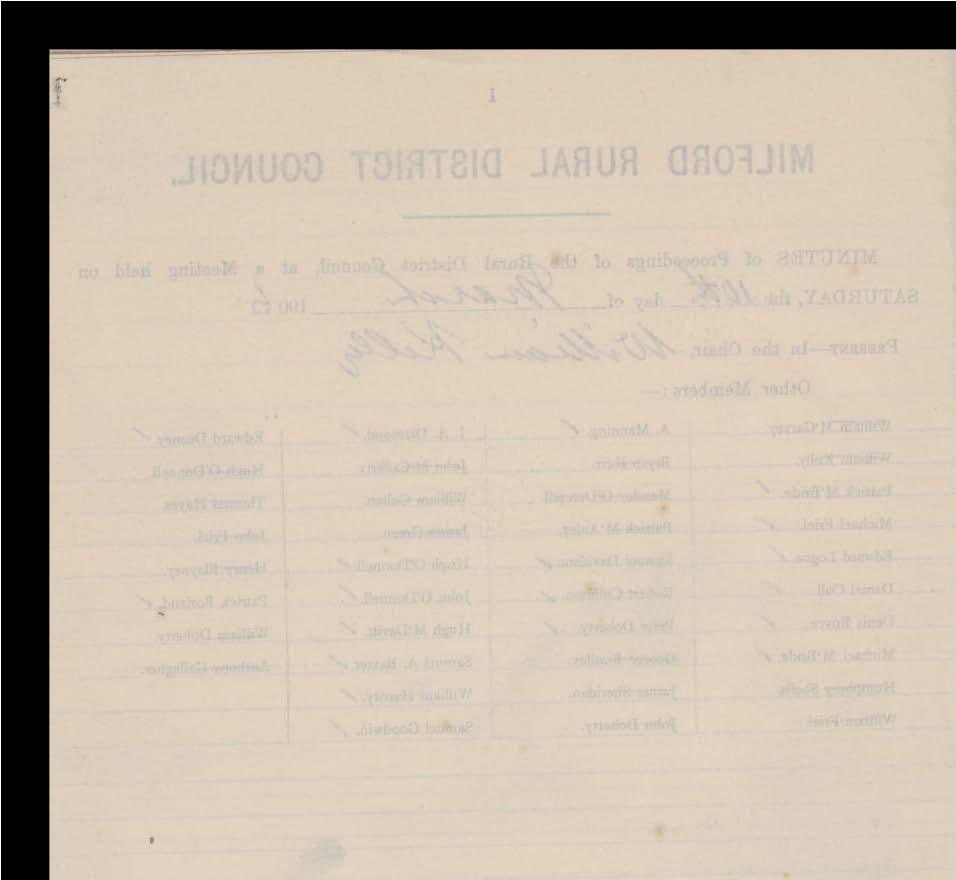 1
MILFORD RURAL DISTRICT COUNCIL.
MINUTES of Proceedings of the Rural District Council, at a Meeting held on
SATURDAY, the 10th day of March 190
PRESENT—In the Chair, William Kelly
Other Members:—
William M'Garvey A. Manning. ✓ J. A. Diamond. ✓ Edward Deeney. ✓
William Kelly. Bryan Kerr. John Hugh O'Donnell.
Patrick M'Bride. ✓ O'Donnell. William Callan. Thomas Hayes.
Michael Friel. ✓ Patrick M'Auley. James Green. John Friel.
Edward Logue. ✓ Samuel Davidson. ✓ Hugh O'Donnell. ✓ Henry Blayney.
Daniel Coll. ✓ Robert ✓ John O'Donnell. ✓ Patrick Borland. ✓
Denis Boyce. ✓ Peter Doherty. ✓ Hugh M'Devitt. ✓ William Doherty.
Michael M'Bride. ✓ George Samuel A. Baxter. ✓ Anthony Gallagher.
Humphrey Shiels. James Sheridan. William ✓
William Friel. John Doherty. Samuel Goodwin. ✓